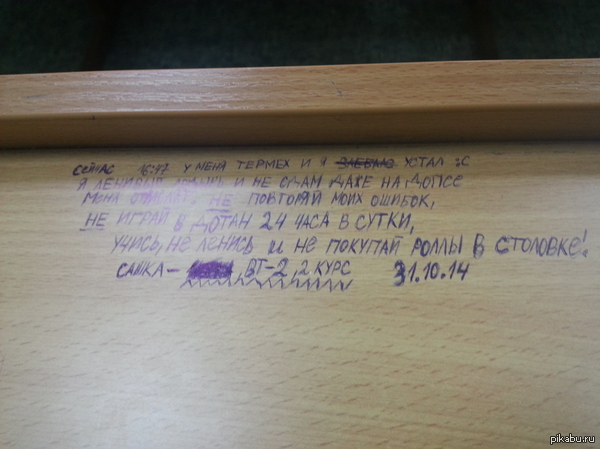 СЕЙЧАС 16:47 У МЕНЯ ТЕРМЕХ И Я УСТАЛ :С
Я ЛЕНИВЫЙ И НЕ СДАМ ДАЖЕ НА ДОПСЕ
МЕНЯ НЕ ПОВТОРЯЙ МОИХ ОШИБОК,
НЕ ИГРАЙ В ДОТАН 24 ЧАСА В СУТКИ,
УЧИСЬ, НЕ ЛЕНИСЬ И НЕ ПОКУПАЙ РОЛЛЫ В СТОЛОВКЕ!
САШКА – , ВТ-2, 2 КУРС 31.10.14
pikabu.ru